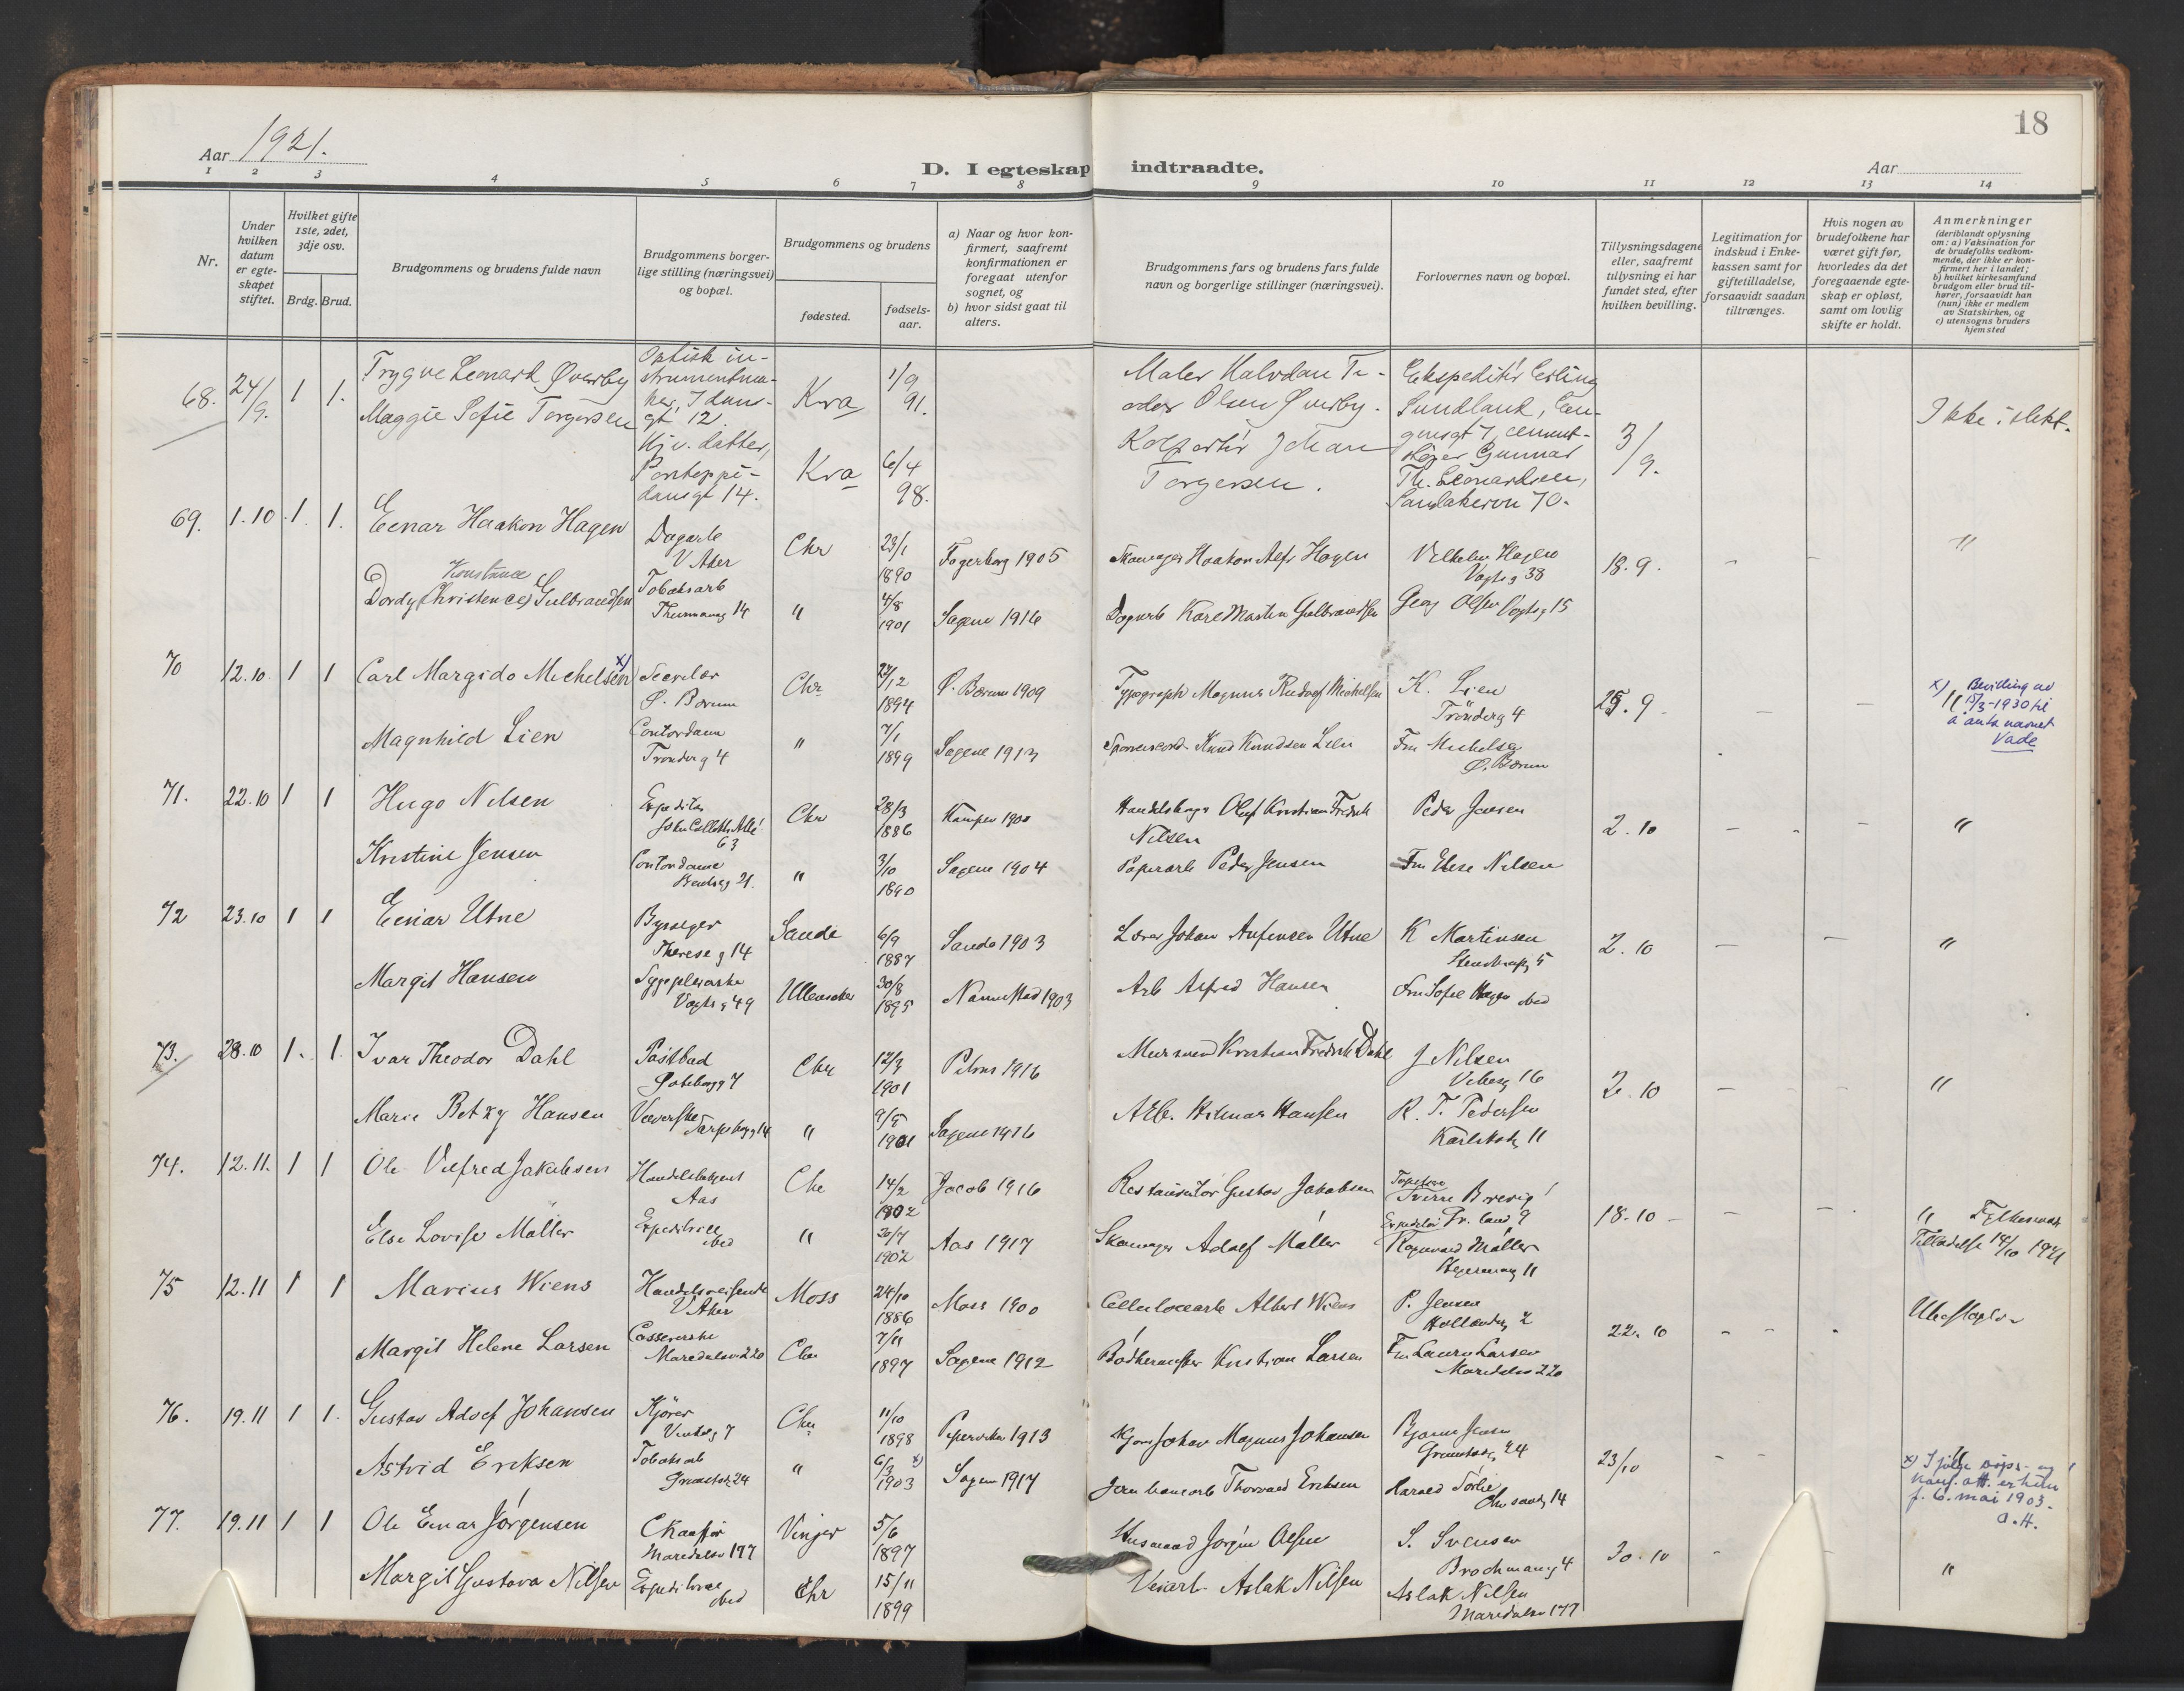 18
Aar 1921.
D. I egteskap indtraadte.
Aar
1 2 3 4 5 6 7 8 9 10 11 12 13 14
Nr.
Under hvilken datum er egteskapet stiftet.
Hvilket gifte 1ste, 2det, 3dje osv.
Brdg. Brud.
Brudgommens og brudens fulde navn
Brudgommens borgerlige stilling (næringsvei) og bopæl.
Brudgommens og brudens
fødested.
fødselsaar.
a) Naar og hvor konfirmert, saafremt konfirmationen er foregaat utenfor sognet, og
b) hvor sidst gaat til alters.
Brudgommens fars og brudens fars fulde navn og borgerlige stillinger (næringsvei).
Forlovernes navn og bopæl.
Tillysningsdagene eller, saafremt tillysning ei har fundet sted, efter hvilken bevilling.
Legitimation for indskud i Enkekassen samt for giftetilladelse, forsaavidt saadan tiltrænges.
Hvis nogen av brudefolkene har været gift før, hvorledes da det foregaaende egteskap er opløst, samt om lovlig skifte er holdt.
Anmerkninger (deriblandt oplysning om: a) Vaksination for de brudefolks vedkommende, der ikke er konfirmert her i landet; b) hvilket kirkesamfund brudgom eller brud tilhører, forsaavidt han (hun) ikke er medlem av Statskirken, og c) utensogns bruders hjemsted
68. 24/9. 1 1. Trygve Leonard Øverby Optisk instrumentmaker, Idunsgt 12. Kra 1/9 91. Maler Halvdan Teodor Olsen Øverby. Ekspeditør Erling Sundland, 3/9. Ikke i slekt.
Maggie Sofie Torgersen Hj.v. datter, Pontoppidansgt 14. Kra 6/4 98. Kolportør Johan Torgersen. Gunnar Th. Leonardsen, Sandakervn 70.
69. 1.10 1. 1. Einar Haakon Hagen Dagarb V Aker Chr 23/1 1890 Fagerborg 1905 Haakon Alfr Hagen Vilhelm Hagen Vogts g 38 18.9. - - "
Konstance
Dordy (Christence) Gulbrandsen Tobaksarb 14 " 4/8 1901 Sagene 1916 Dagarb Karl Martin Gulbrandsen Georg Olsen Vogts g 15
70 12.10. 1 1 Carl Margido Michelsen x) Ø. Bærum Chr. 27/12 1894 Ø. Bærum 1909 Typograph Magnus Rudolf Michelsen K. Lien Trönderg 4 25.9 - - "
x) Bevilling av 15/3-1930 til å anta navnet Vade
Magnhild Lien Contordame Trönderg 4 " 7/1 1899 Sagene 1913 Knud Knudsen Lien Fru Michelsen Ø. Bærum
71. 22.10 1 1 Hugo Nilsen Expeditør John Colletts Allé 63 Chr 28/3 1886 Kampen 1900 Oluf Kristian Fredrik Nilsen Peder Jensen 2.10 - - "
Kristine Jensen Contordame Bentseg 21. " 3/10 1890 Sagene 1904 Papirarb Peder Jensen Fru Else Nilsen
72 23.10 1 1 Einar Utne Therese g 14 Sande 6/9 1887 Sande 1903 Lærer Johan Utne K Martinsen 5 2.10 - - "
Margit Hansen Sygepleierske Vogts g 49 Ullensaker 30/8 1895 Nannestad 1903 Arb Alfred Hansen Fru Sofie Hagen ibid
73. 28.10 1. 1. Ivar Theodor Dahl Postbud Göteborgg 7 Chr 1901 Petrus 1916 Murmand Kristian Fredrik Dahl J Nilsen Vibesg 16 2.10 - - "
Marie Betzy Hansen Væverske Sarpsborgg 14 " 9/5 1901 Sagene 1916 Arb. Hilmar Hansen R. T. Pedersen 11
74. 12.11. 1 1 Ole Vilfred Jakobsen Handelsbetjent Aas Chr 14/2 1902 Jacob 1916 Restauratör Gustav Jakobsen Sverre Brevig 18.10 - - " Tilladelse 14/10 1921
Else Lovise Möller ibid " 30/7 1902 Aas 1917 Adolf Möller Ragnvald Möller 11
75 12.11 1 1 Marius Wiens Handelsreisende V Aker Moss 24/10 1886 Moss 1900 Cellulosearb Albert Wiens P. Jensen 2 22.10 - - Ubeslegtet
Margit Helene Larsen Casererske Maridalsv 220 Chr 7/11 1897 Sagene 1912 Bödkermester Kristian Larsen Fru Laura Larsen Maridalsv 220
76. 19.11 1 1. Gustav Adolf Johansen Kjörer 7 Chr 11/10 1898 Pipervika 1913 Johan Magnus Johansen Bjarne Jensen Grimstadg 24 23/10 - - "
Astrid Eriksen Tobaksarb Grimstadg 24 " 6/3 x) 1903 Sagene 1917 Thorvald Eriksen Harald Sörlie 14
x) Ifölge dåps- og konf. att. er hun f. 6. mai 1903. O.H.
77. 19.11 1 1 Ole Einar Jörgensen Chauffør Maridalsv 177 Vinger 5/6 1897 Husmand Jörgen Olsen S. Svensen Brochmang 4 30.10 - - "
Margit Gustava Nilsen ibid Chr 15/11 1899 Aslak Nilsen Aslak Nilsen Maridalsv 177